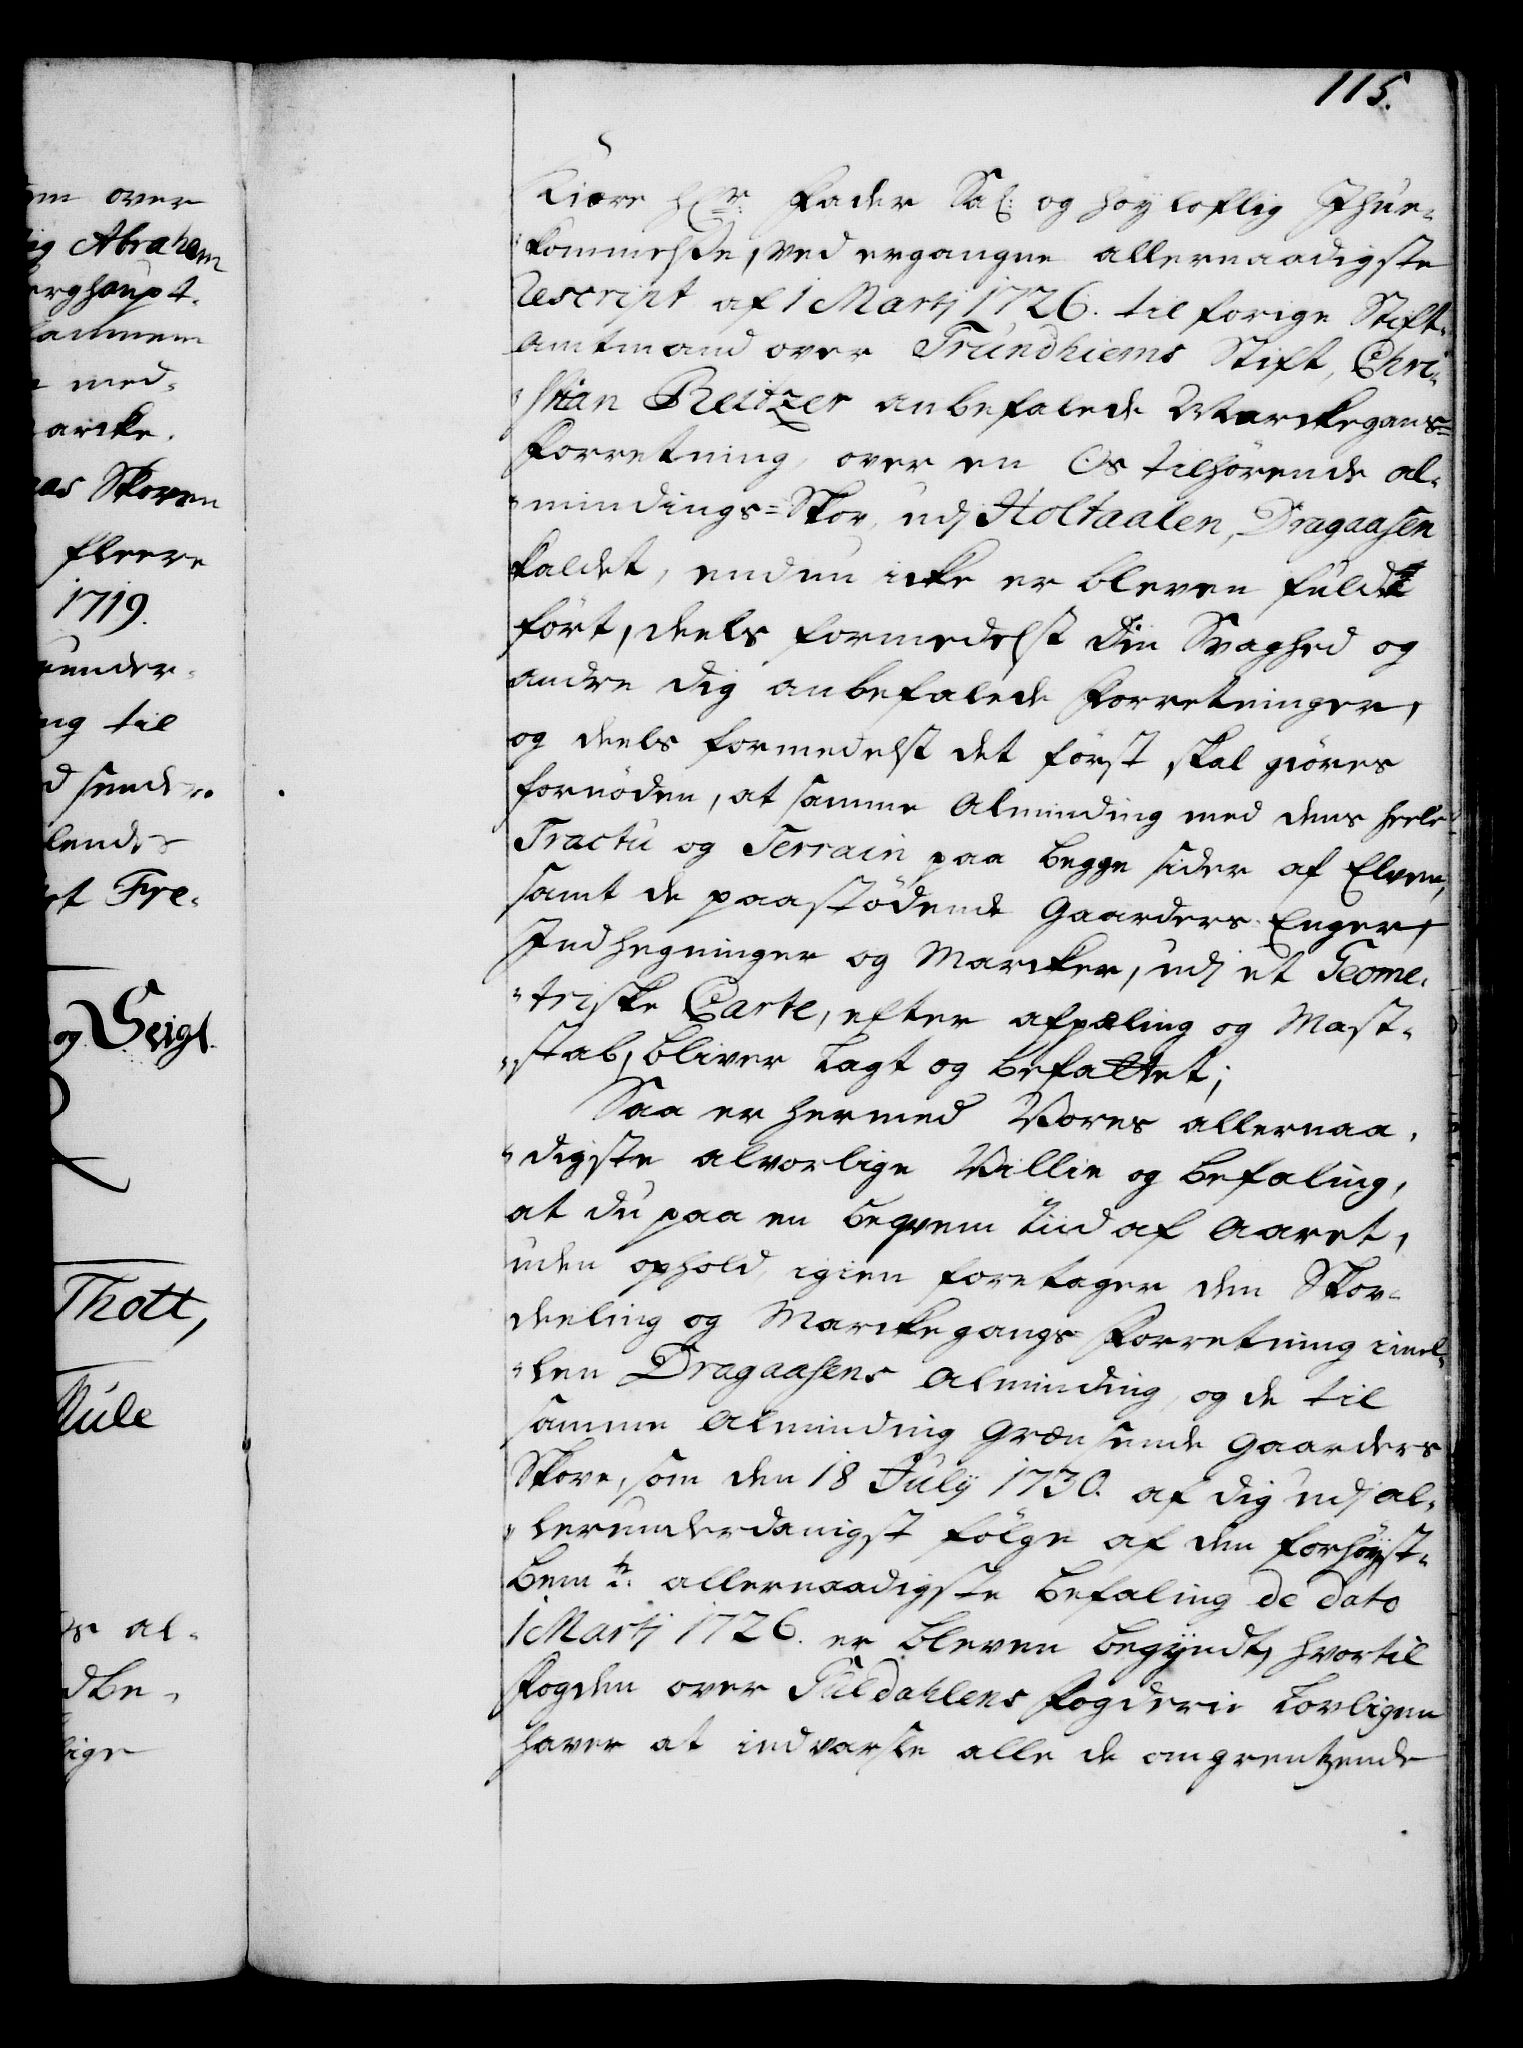 115.
Kiære Hr: Fader Sal: og høyloflig Ihue-
kommelse, ved ergangne allernaadigste
Rescript af 1 Martj 1726. til forige Stift-
amtmand over Trundhiems Stift, Chri-
stian Reitzer anbefalede Marckegans-
Forretning, over en Os tilhørende al-
mindings-Skov, udj Holtaalen, Dragaasen
kaldet, endnu icke er bleven fuld
ført, deels formedelst din Svaghed og
andre dig anbefalede Forretninger,
og deels formedelst det først skal giøres
fornøden, at samme Alminding med dens heele
Tractu og Terrain paa begge sider af Elven,
samt de paastødende Gaarders Enger,
Indhegninger og Marcker, udj et Geome-
triske Carte, efter afpæling og Mast-
stab, bliver lagt og befattet;
Saa er hermed Vores allernaa-
digste alvorlige Villie og befaling,
at du paa en beqvem tiid af Aaret,
uden ophold, igien foretager den Skov-
deeling og Marckegangs Forretning imel-
len Dragaasens Alminding, og de til
samme Alminding grændsende Gaarders
Skove, som den 18 July 1730. af dig udj al-
lerunderdanigst følge af den forhøyst-
bemte: allernaadigste befaling de dato
1 Martj 1726. er bleven begyndt, hvortil
Fogden over Guldahlens Fogderie lovligen
haver at indvarsle alle de omgrentzende
over
Abraham
berghaupt-
med-
marcke.
Skoven
fleere
1719.
under-
til
Fre-
og Seigl.
Thott,
Rule
al-